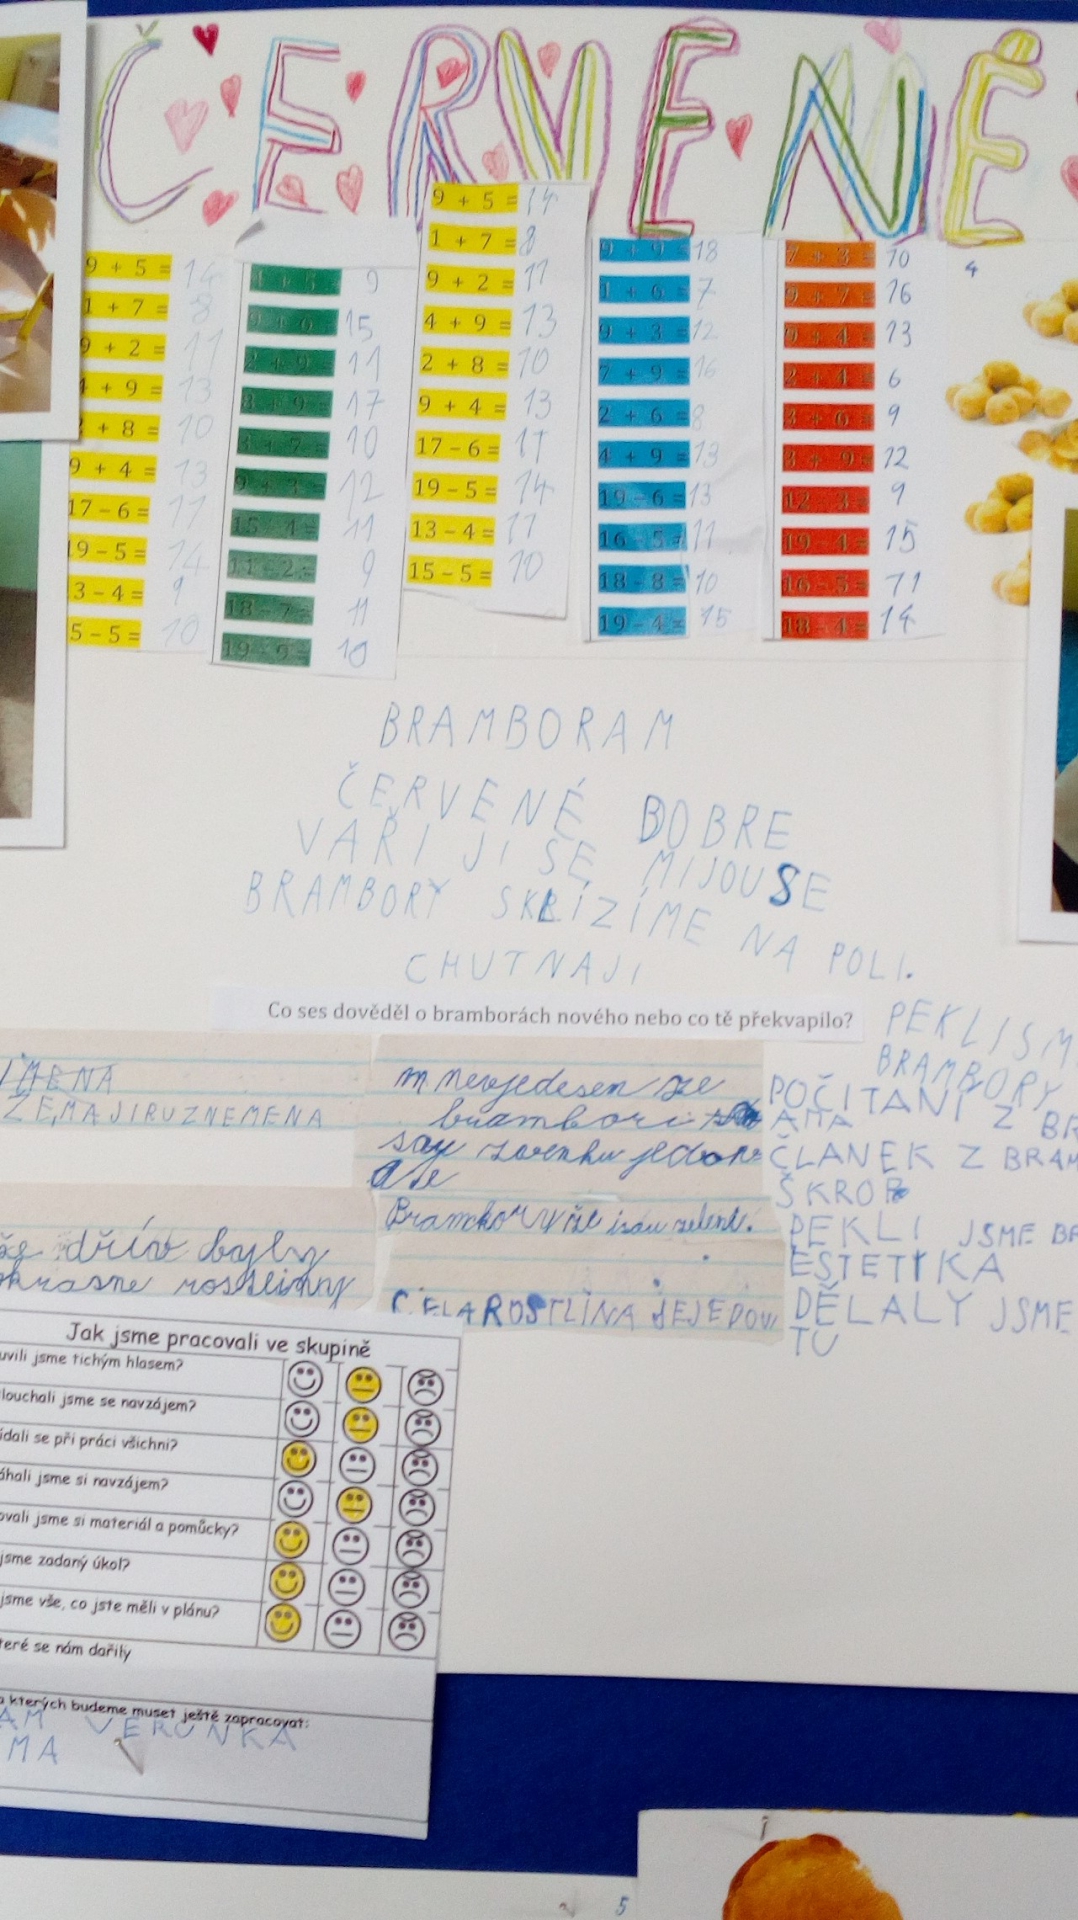 ČERVENÉ
9 + 5 = 14
1 + 7 = 8
9 + 2 = 11
4 + 9 = 13
2 + 8 = 10
9 + 4 = 13
17 - 6 = 11
19 - 5 = 14
3 - 4 = 9
5 - 5 = 10
9
9 + 6 = 15
2 + 9 = 11
8 + 9 = 17
3 + 7 = 10
9 + 3 = 12
15 - 4 = 11
11 - 2 = 9
18 - 7 = 11
10
9 + 5 = 14
1 + 7 = 8
9 + 2 = 11
4 + 9 = 13
2 + 8 = 10
9 + 4 = 13
17 - 6 = 11
19 - 5 = 14
13 - 4 = 11
15 - 5 = 10
9 + 9 = 18
1 + 6 = 7
9 + 3 = 12
7 + 9 = 16
2 + 6 = 8
4 + 9 = 13
19 - 6 = 13
16 - 5 = 11
18 - 8 = 10
19 - 4 = 15
7 + 3 = 10
9 + 7 = 16
9 + 4 = 13
2 + 4 = 6
3 + 6 = 9
3 + 9 = 12
12 - 3 = 9
19 - 4 = 15
16 - 5 = 11
18 - 4 = 14
4
BRAMBORAM
ČERVENÉ DOBRE
VAŘI JI SE MIJOUSE
BRAMBORY SKLÍZÍME NA POLI.
CHUTNAJI
Co ses dověděl o bramborách nového nebo co tě překvapilo?
JMENA
ZEMAJIRUZNEMENA
že dřív byly
okrasne rostlinny
brambori
Brambory že jsou zelené.
CELA ROSTLINA JEJEDOV
PEKLI JSM
BRAMBORY
POČITANÍ Z BR
AMA
ČLANEK Z BRAM
ŠKROB
PEKLI JSME BR
ESTETIKA
DĚLALY JSME
TU
Jak jsme pracovali ve skupině
uvili jsme tichým hlasem?
louchali jsme se navzájem?
ídali se při práci všichni?
áhali jsme si navzájem?
ovali jsme si materiál a pomůcky?
jsme zadaný úkol?
jsme vše, co jste měli v plánu?
teré se nám dařily
a kterých budeme muset ještě zapracovat:
AM VERUNKA
MA
5